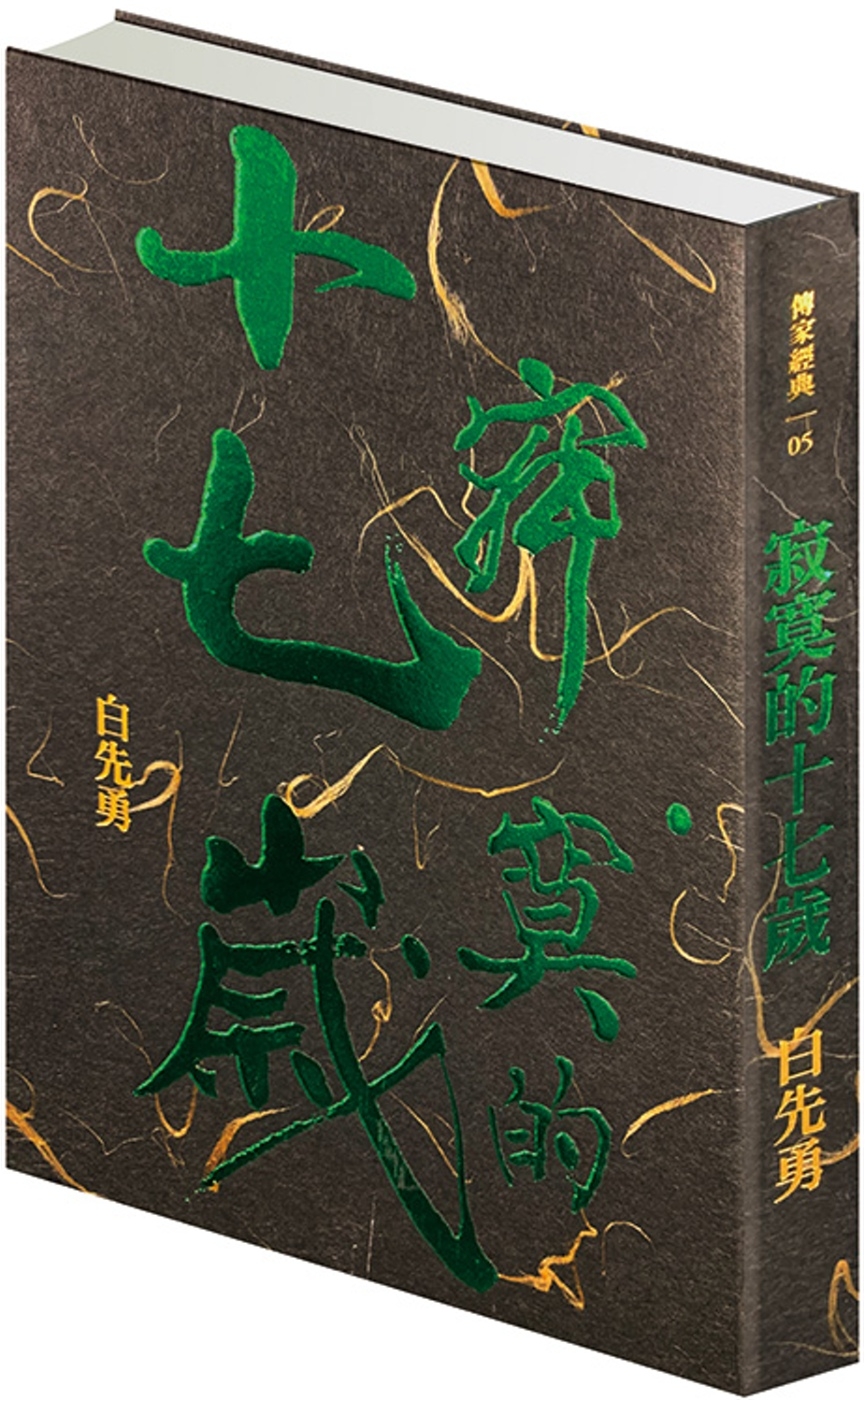 寂寞的
十七歲
白先勇
傳家經典|05
寂寞的十七歲
白先勇